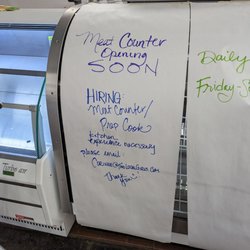 Meat Counter
opening
SOON
HIRING:
Meat Counter/
Prep Cook
kitchen
experience necessary
please email:
Thank
You!
Daily
Friday-S
Turbo air